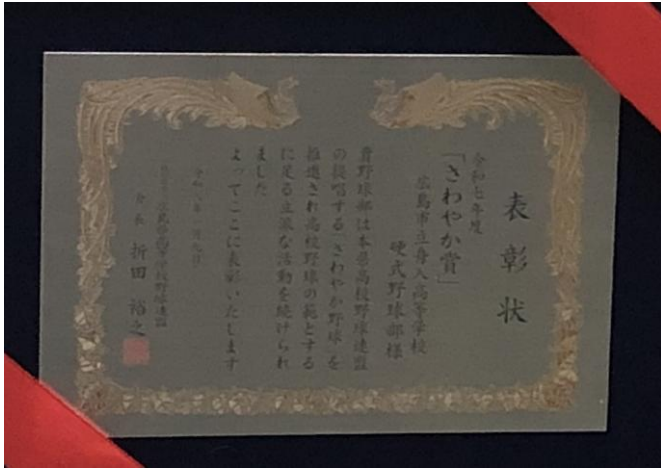 表彰状
令和七年度
「さわやか賞」
広島市立舟入高等学校
硬式野球部様
貴野球部は本県高校野球連盟
の提唱する「さわやか野球」を
推進され高校野球の範とする
に足る立派な活動を続けられ
ました
よってここに表彰いたします
広島県高等学校野球連盟
会長 折田裕之